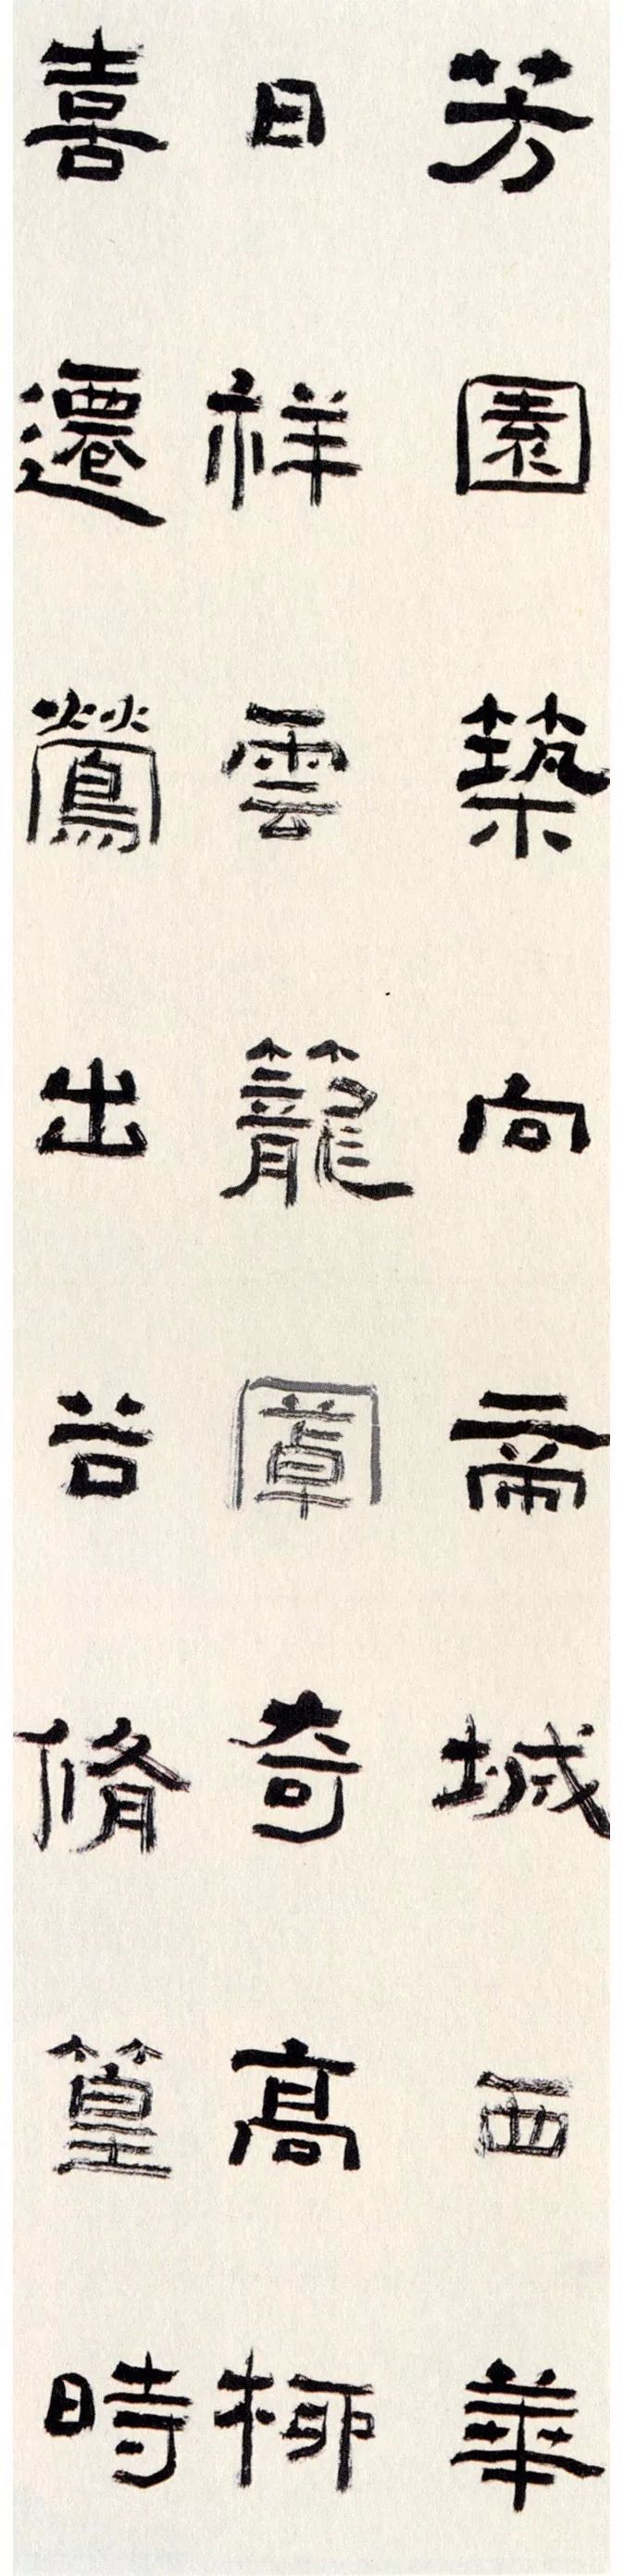 芳園築向帝城西華
日祥雲籠罩奇高柳
喜遷鶯出谷脩篁時